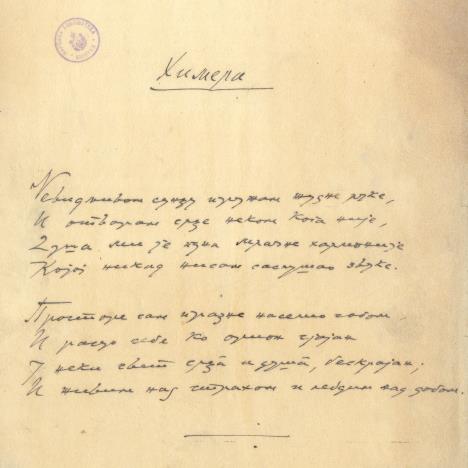 Химера
Невидживом сунцу пружам жудне руке,
И отварам срце неком кога није,
Душа ми је пуна мрачне хармоније
Којој никад нисам саслушао звуке.
Просторе сам празне населио собом,
И расуо себе ко огроман сјајан
У неки свет срца и душа, бескрајан;
И живим над страхом и лебдим над добом.